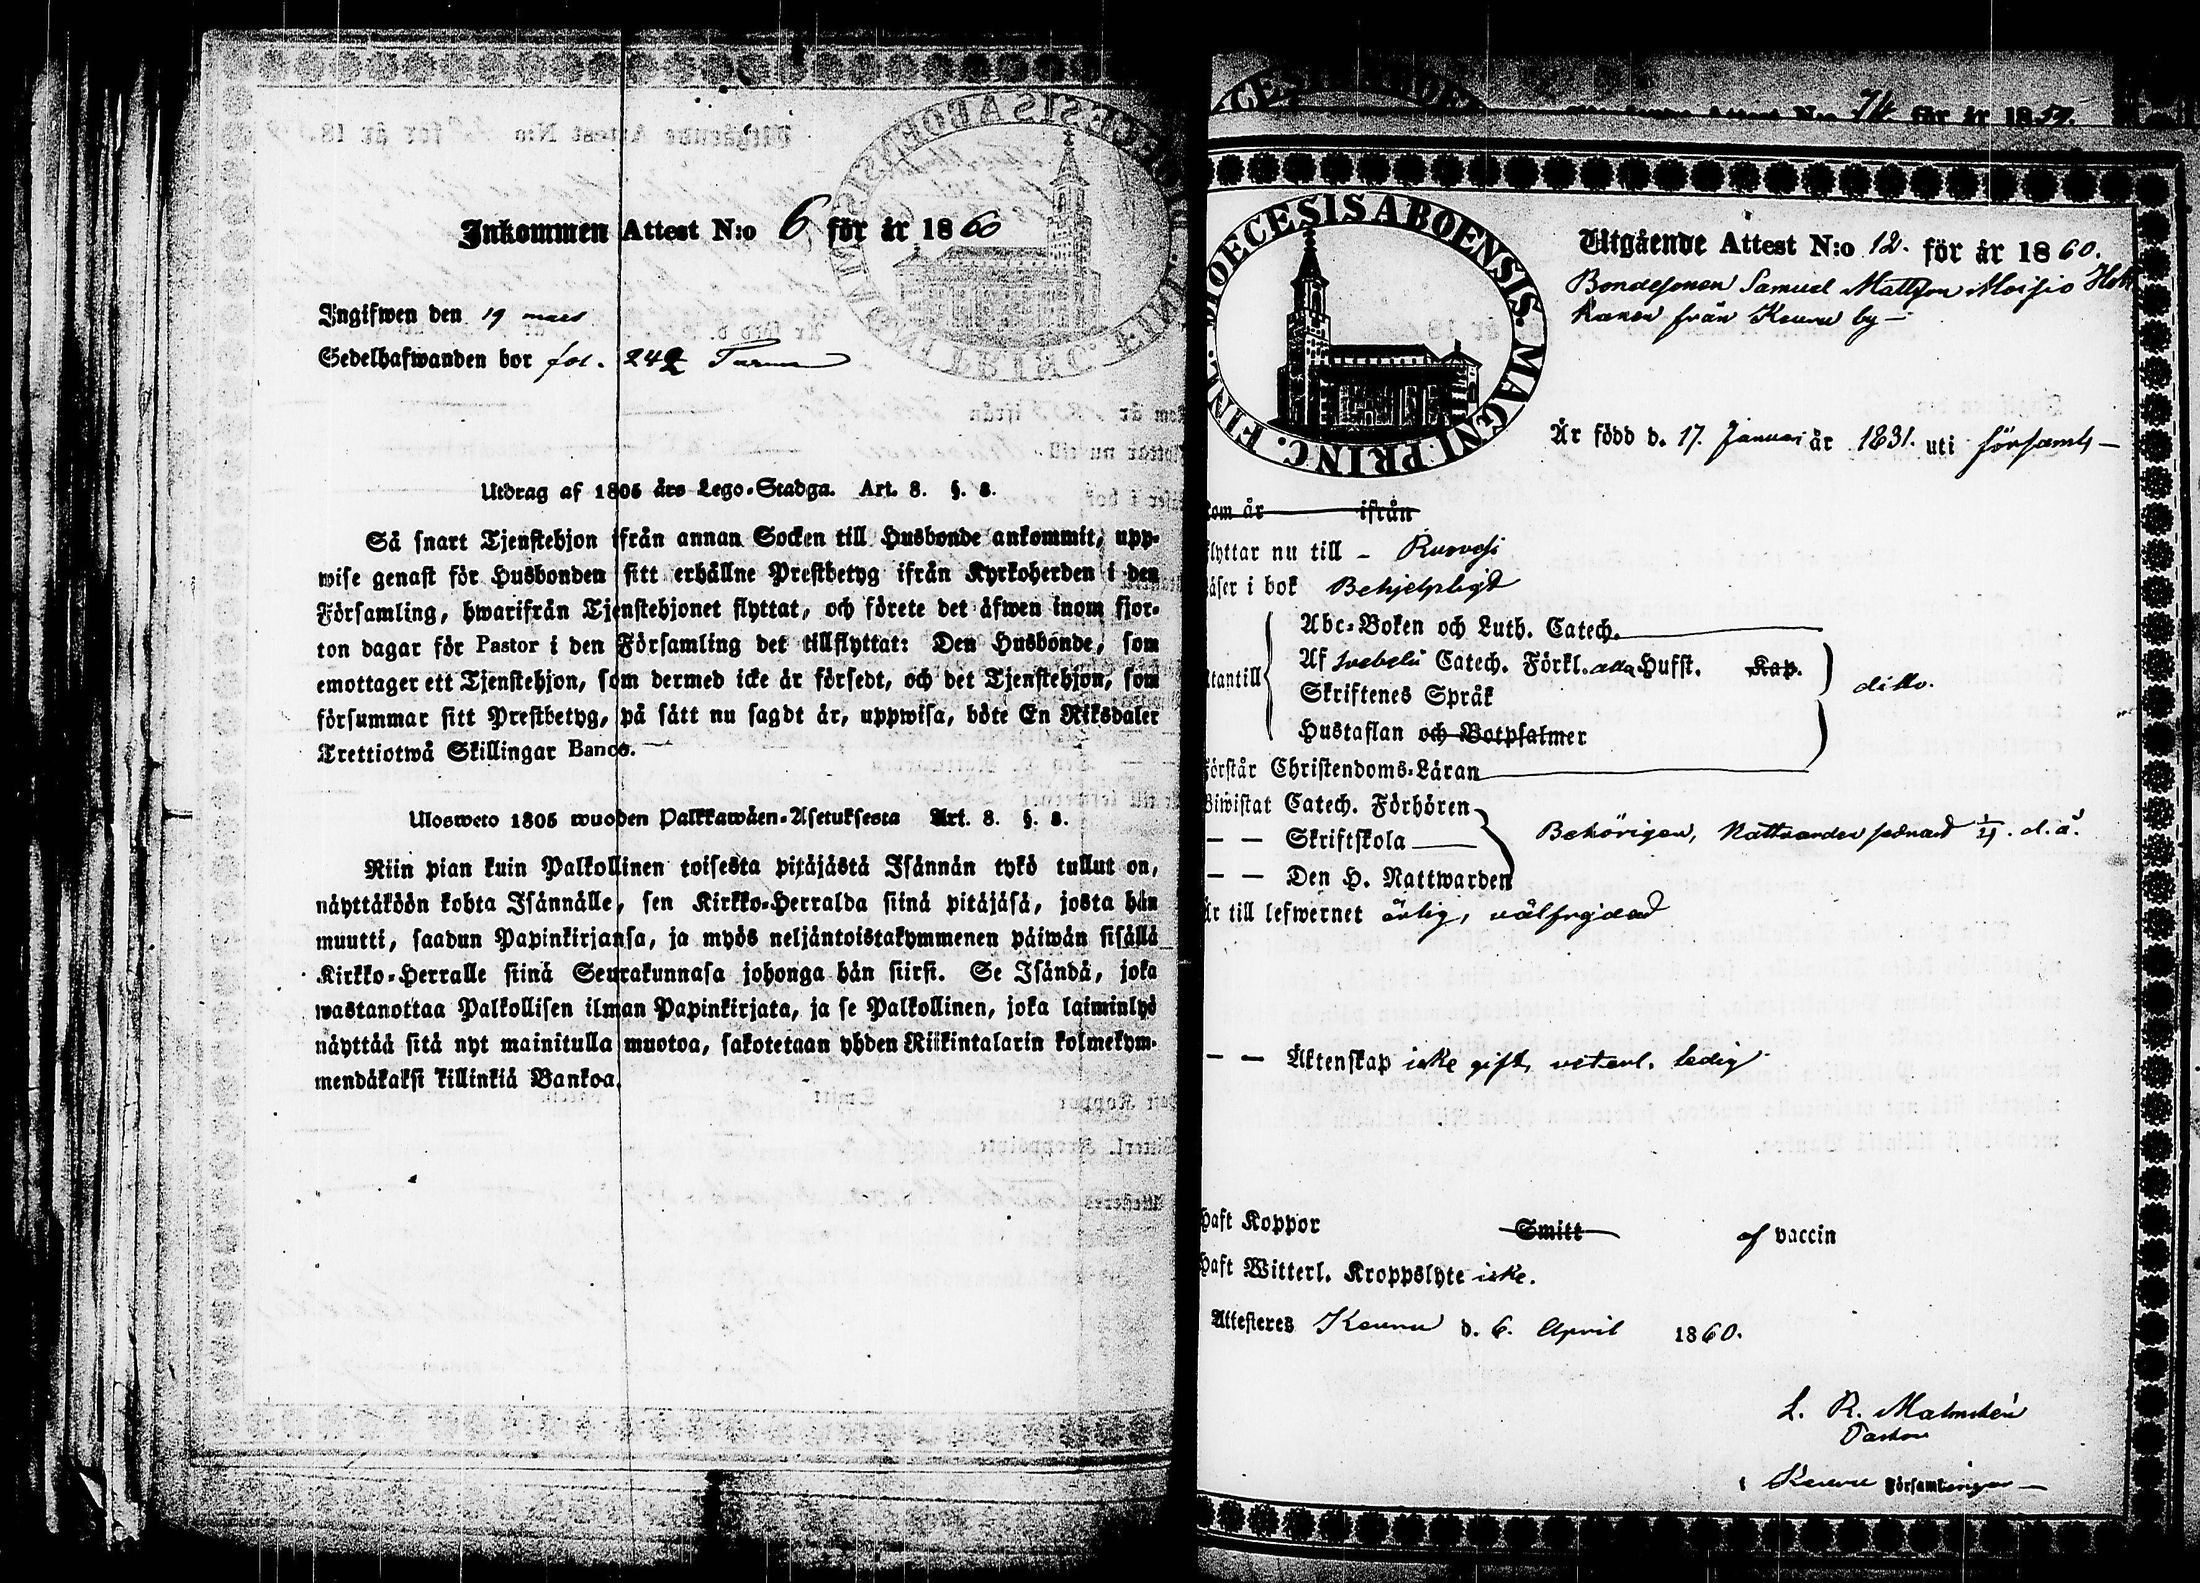 Inkommen Attest N:o 6 för år 1860
Ingifwen den 19 mars
Sedelhafwanden bor fol. 242
Utdrag af 1805 års Lego-Stadga. Art. 8. §. 8.
Så snart Tjenstehjon ifrån annan Socken till Husbonde ankommit, upp-
wise genast för Husbonden sitt erhållne Prestbetyg ifrån Kyrkoherden i den
Församling, hwarifrån Tjenstehjonet flyttat, och förete det äfwen inom fjor-
ton dagar för Pastor i den Församling det tillflyttat: Den Husbonde, som
emottager ett Tjenstehjon, som dermed icke är försedt, och det Tjenstehjon, som
försummar sitt Prestbetyg, på sätt nu sagdt är, uppwisa, böte En Riksdaler
Trettiotwå Skillingar Banco.
Ulosweto 1805 wuoden Palkkawäen-Asetuksesta Art. 8. §. 8.
Niin pian kuin Palkollinen toisesta pitäjästä Isännän tykö tullut on,
näyttäköön kohta Isännälle, sen Kirkko-Herralda siinä pitäjäsä, josta hän
muutti, saadun Papinkirjansa, ja myös neljäntoistakymmenen päiwän sisällä
Kirkko-Herralle siinä Seurakunnasa johonga hän siirsi. Se Isändä, joka
wastanottaa Palkollisen ilman Papinkirjata, ja se Palkollinen, joka laiminlyö
näyttää sitä nyt mainitulla muotoa, sakotetaan yhden Riikintalarin kolmekym-
mendäkaksi killinkiä Bankoa.
Attest N:o 74 för år 18
DIOECESIS ABOENSIS. MAGNI PRINC. FINL.
Utgående Attest N:o 12. för år 1860.
Bondesonen Samuel Mattsson Moisio
från Keuru by
Är född d. 17. Januari år 1831. uti församl
kom år ifrån
flyttar nu till - Ruovesi
läser i bok Behjelpligt
utantill
Abc-Boken och Luth. Catech.
Af Svebelii Catech. Förkl. alla Hufst. Kap.
ditto.
Skriftenes Språk
Hustaflan och Botpsalmer
förstår Christendoms-Läran
Biwistat Catech. Förhören
Behörigen, Nattvarden d. å.
— — Skriftskola
— — Den H. Nattwarden
är till lefwernet ärlig, välfrejdad
— — Äktenskap icke gift, veterl. ledig
haft Koppor Smitt af vaccin
haft Witterl. Kroppslyte icke.
Attesteres Keuru d. 6. April 1860.
L. R. Malmstén
Pastor
i Keuru Församlingar